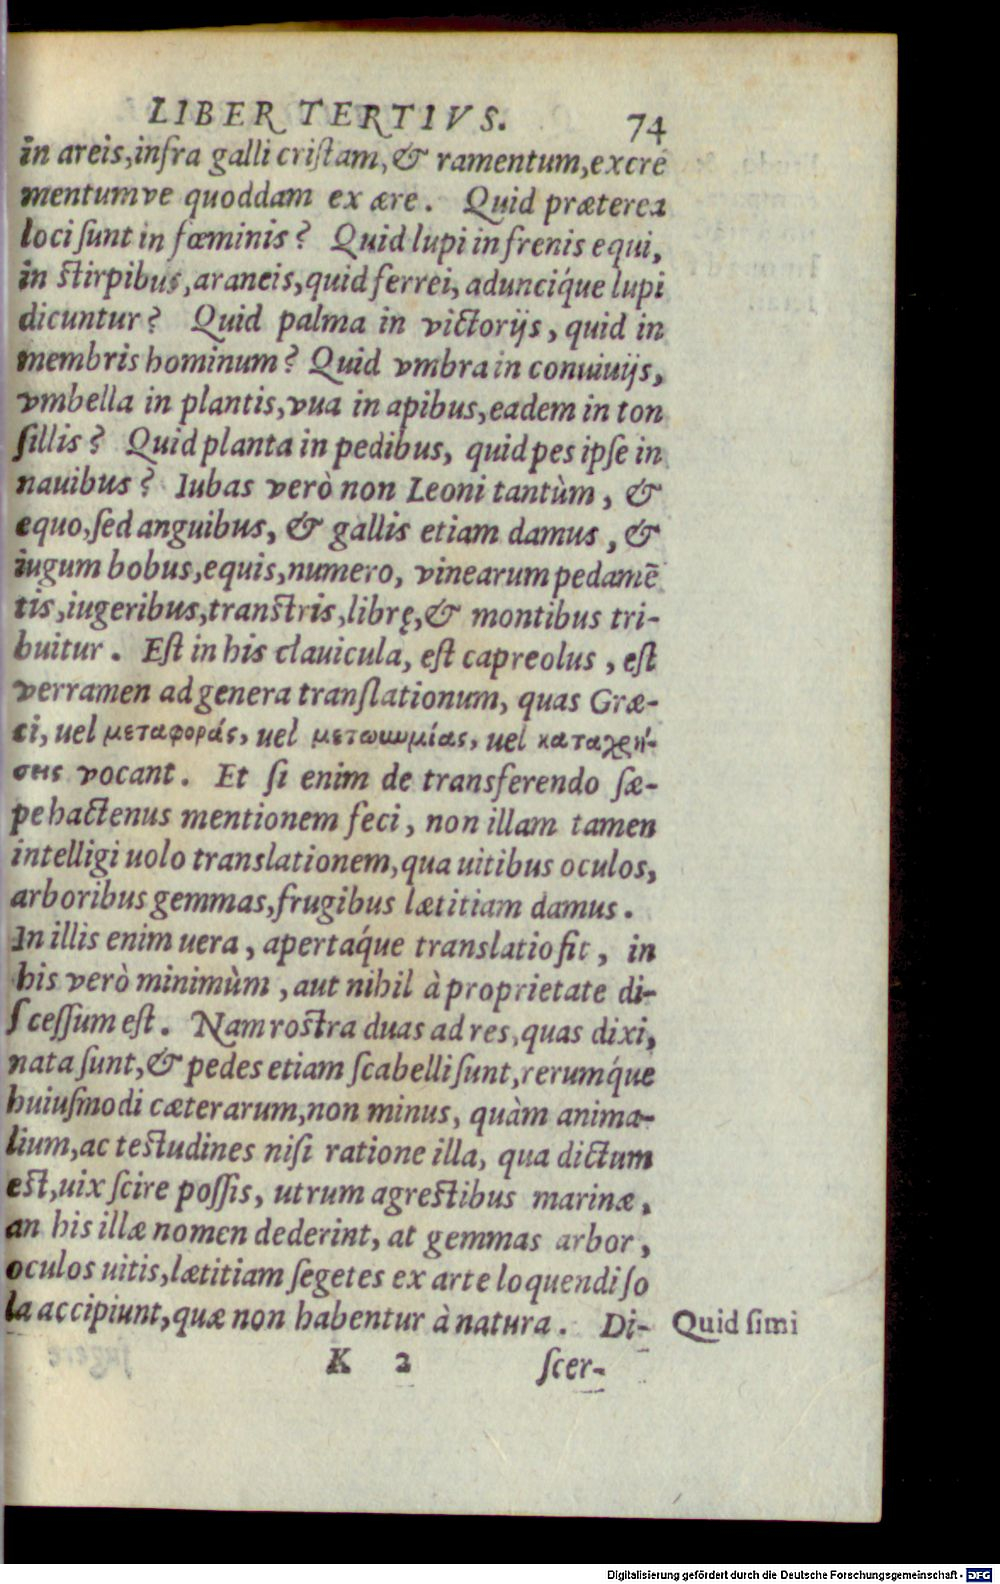 LIBER TERTIVS. 74
in areis, infra galli cristam, & ramentum, excre
mentumve quoddam ex ære. Quid præterea
loci sunt in fœminis? Quid lupi in frenis equi,
in stirpibus, araneis, quid ferrei, adunciq́ue lupi
dicuntur? Quid palma in victorijs, quid in
membris hominum? Quid vmbra in conuiuijs,
vmbella in plantis, vua in apibus, eadem in ton
sillis? Quid planta in pedibus, quid pes ipse in
nauibus? Iubas verò non Leoni tantùm, &
equo, sed anguibus, & gallis etiam damus, &
iugum bobus, equis, numero, vinearum pedamē
tis, iugeribus, transtris, librę, & montibus tri-
buitur. Est in his clauicula, est capreolus, est
verramen ad genera translationum, quas Græ-
ci, uel μεταφοράς, uel μετωνυμίας, uel καταχρή-
σεις vocant. Et si enim de transferendo sæ-
pe hactenus mentionem feci, non illam tamen
intelligi uolo translationem, qua uitibus oculos,
arboribus gemmas, frugibus lætitiam damus.
In illis enim uera, apertaq́ue translatio fit, in
his verò minimùm, aut nihil à proprietate di-
scessum est. Nam rostra duas ad res, quas dixi,
nata sunt, & pedes etiam scabelli sunt, rerumq́ue
huiusmodi cæterarum, non minus, quàm anima-
lium, ac testudines nisi ratione illa, qua dictum
est, uix scire possis, utrum agrestibus marinæ,
an his illæ nomen dederint, at gemmas arbor,
oculos uitis, lætitiam segetes ex arte loquendi so
la accipiunt, quæ non habentur à natura. Di-
Quid simi
K 2 scer-
Digitalisierung gefördert durch die Deutsche Forschungsgemeinschaft - DFG